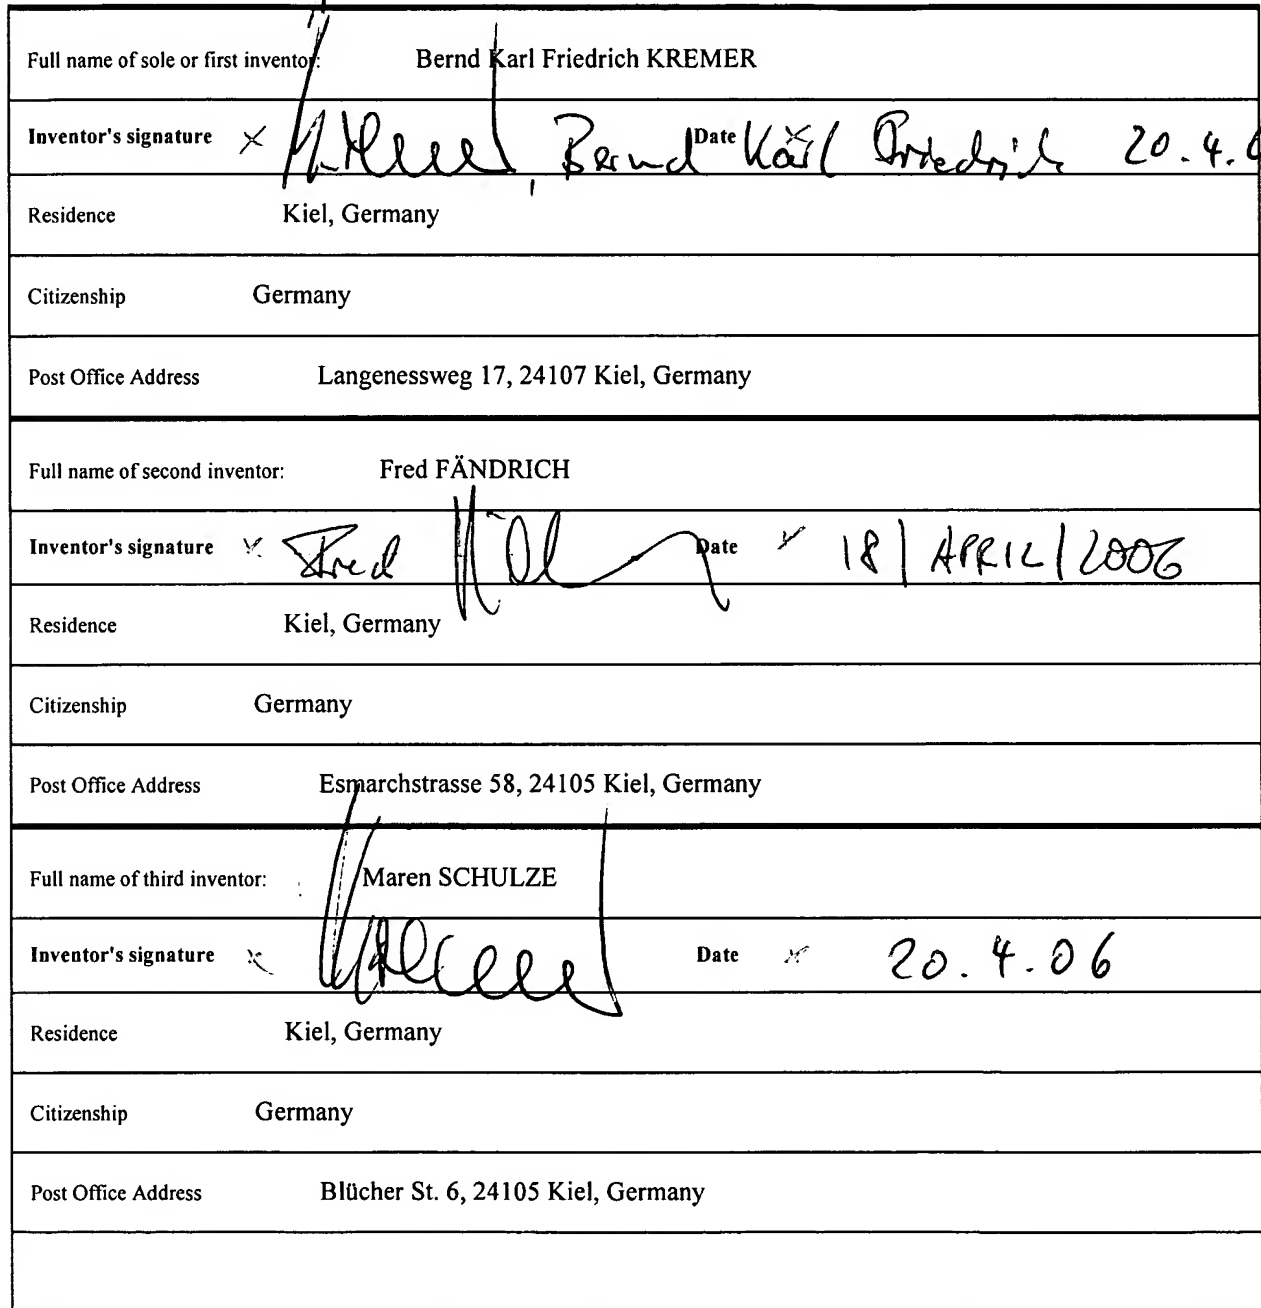 Full name of sole or first inventor: Bernd Karl Friedrich KREMER
Inventor's signature × , Bernd Date × Karl Friedrich 20.4.
Residence Kiel, Germany
Citizenship Germany
Post Office Address Langenessweg 17, 24107 Kiel, Germany
Full name of second inventor: Fred FÄNDRICH
Inventor's signature × Fred Date × 18/APRIL/2006
Residence Kiel, Germany
Citizenship Germany
Post Office Address Esmarchstrasse 58, 24105 Kiel, Germany
Full name of third inventor: Maren SCHULZE
Inventor's signature × Date × 20.4.06
Residence Kiel, Germany
Citizenship Germany
Post Office Address Blücher St. 6, 24105 Kiel, Germany